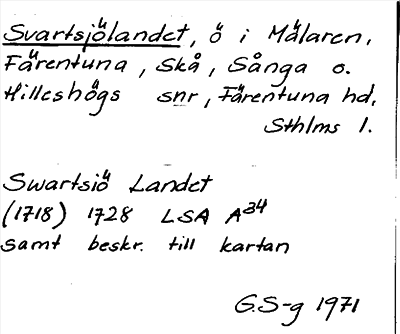 Svartsjölandet, ö i Mälaren,
Färentuna, Skå, Sånga o.
Hilleshögs snr, Färentuna hd,
Sthlms l.
Swartsiö Landet
(1718) 1728 LSA A34
samt beskr. till kartan
G.S-g 1971